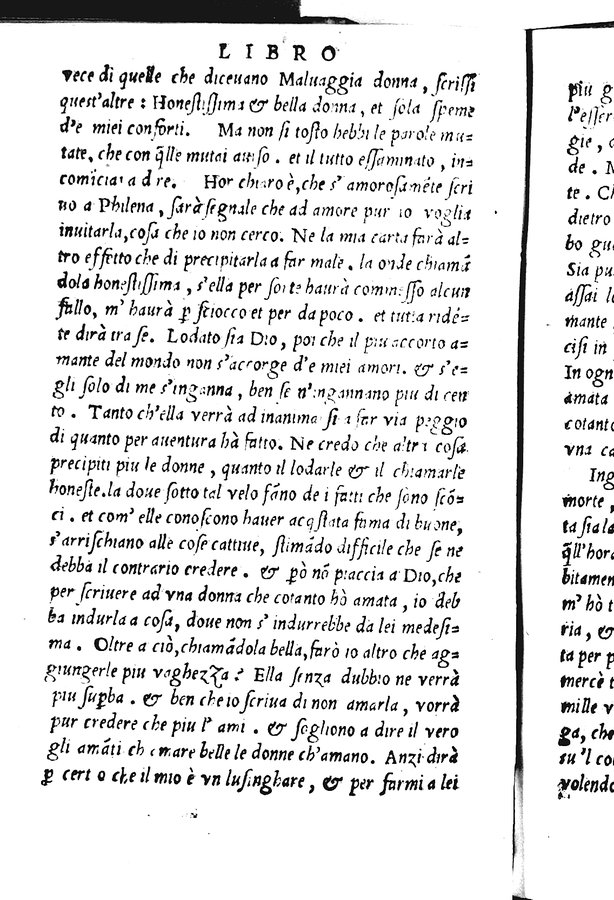 LIBRO
vece di quelle che diceuano Maluaggia donna, scrissi
quest'altre: Honestissima & bella donna, et sola speme
d'e miei conforti. Ma non si tosto hebbi le parole mu-
tate, che con q̃lle mutai auiso. et il tutto essaminato, in-
comĩciai a dire. Hor chiaro è, che s'amorosamẽte scri
uo a Philena, sarà segnale che ad amore pur io voglia
inuitarla, cosa che io non cerco. Ne la mia carta farà al-
tro effetto che di precipitarla a far male. la onde chiamã
dola honestissima, s'ella per sorte haurà commesso alcun
fallo, m'haurà ꝑ sciocco et per da poco. et tutta ridẽ-
te dirà tra se. Lodato sia Dio, poi che il piu accorto a-
mante del mondo non s'accorge d'e miei amori. & s'e-
gli solo di me s'inganna, ben se n'ingannano piu di cen
to. Tanto ch'ella verrà ad inanimarsi a far via peggio
di quanto per auentura hà fatto. Ne credo che altra cosa
precipiti piu le donne, quanto il lodarle & il chiamarle
honeste. la doue sotto tal velo fãno de i fatti che sono scõ-
ci. et com'elle conoscono hauer acq̃stata fama di buone,
s'arrischiano alle cose cattiue, stimãdo difficile che se ne
debba il contrario credere. & ꝑò nõ piaccia a Dio, che
per scriuere ad vna donna che cotanto hò amata, io deb
ba indurla a cosa, doue non s'indurrebbe da lei medesi-
ma. Oltre a ciò, chiamãdola bella, farò io altro che ag-
giungerle piu vaghezza? Ella senza dubbio ne verrà
piu suꝑba. & ben che io scriua di non amarla, vorrà
pur credere che piu l'ami. & sogliono a dire il vero
gli amãti chiamare belle le donne ch'amano. Anzi dirà
ꝑ certo che il mio è vn lusinghare, & per farmi a lei
piu g
l'esser
gie,
de. M
te. Ch
dietro
bo gu
Sia pu
assai l
mante
cisi in
In ogn
amata
cotanto
vna ca
Ing
morte,
ta sia la
q̃ll'hora
bitamen
m'hò t
ria, &
ta per p
mercè t
mille v
ga, che
su'l co
volendo